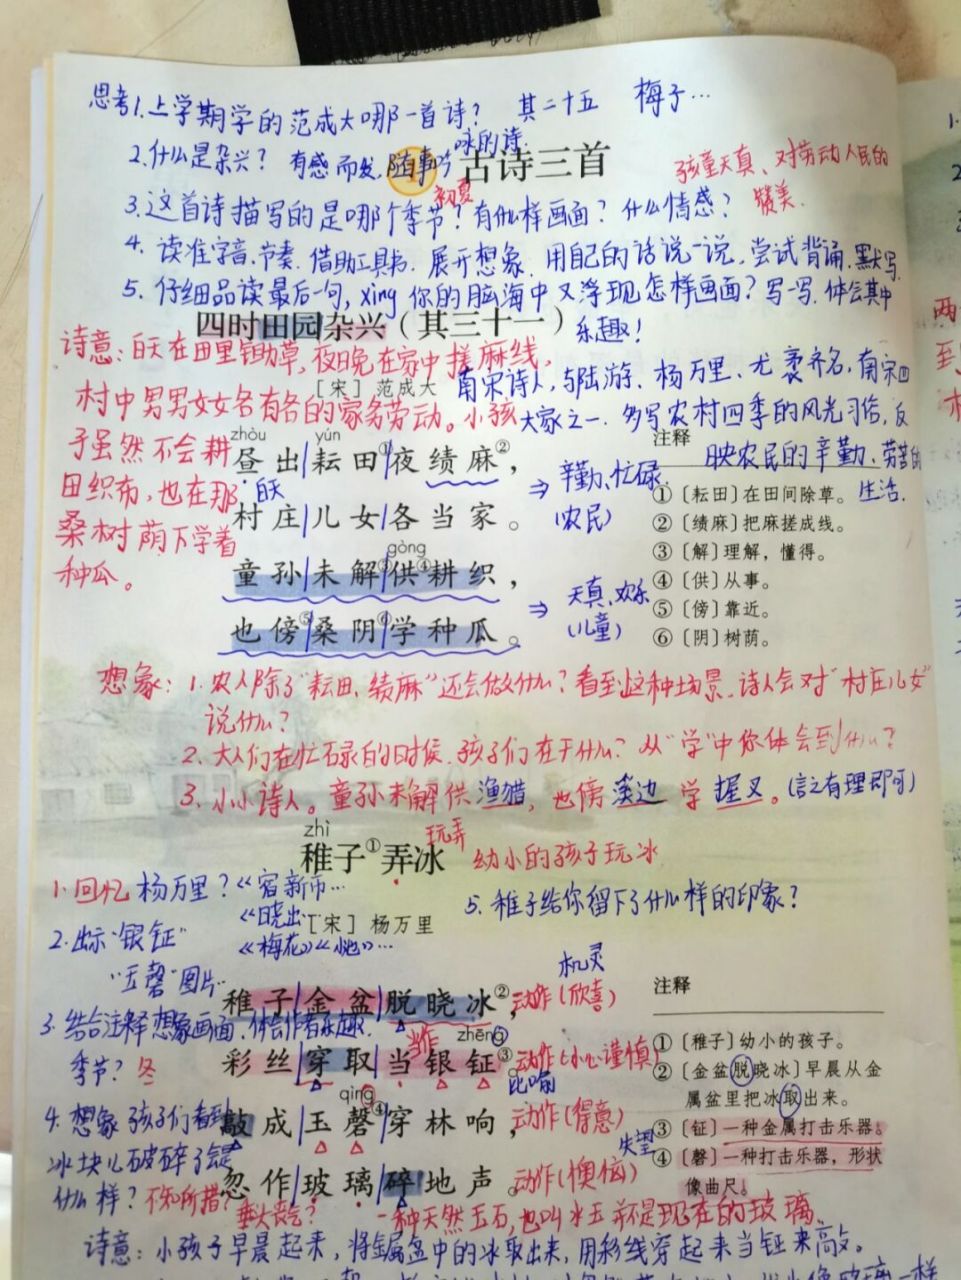 思考1.上学期学的范成大哪一首诗？ 其二十五 梅子…
2.什么是杂兴？ 有感而发,随事吟咏的诗.
古诗三首
孩童天真、对劳动人民的赞美.
初夏
3.这首诗描写的是哪个季节？有什么样画面？什么情感？
4. 读准字音.节奏.借助工具书.展开想象.用自己的话说一说.尝试背诵.默写.
5. 仔细品读最后一句，xing你的脑海中又浮现怎样画面？写一写.体会其中乐趣！
四时田园杂兴（其三十一）
诗意：白天在田里锄草，夜晚在家中搓麻线，
村中男男女女各有各的家务劳动。小孩
子虽然不会耕
田织布，也在那
桑树荫下学着
种瓜。
［宋］范成大
南宋诗人，与陆游、杨万里、尤袤齐名，南宋四
大家之一.多写农村四季的风光习俗，反
映农民的辛勤、劳苦的
生活.
zhòu yún
昼出耘田①夜绩麻②，
白天
村庄儿女各当家。
⇒ 辛勤、忙碌
（农民）
gòng
童孙未解③供④耕织，
也傍⑤桑阴⑥学种瓜。
⇒ 天真、欢乐
（儿童）
注释
①〔耘田〕在田间除草。
②〔绩麻〕把麻搓成线。
③〔解〕理解，懂得。
④〔供〕从事。
⑤〔傍〕靠近。
⑥〔阴〕树荫。
想象：1.农人除了“耘田、绩麻”还会做什么？看到这种场景.诗人会对“村庄儿女”
说什么？
2.大人们在忙碌的时候.孩子们在干什么？从“学”中你体会到什么？
3.小小诗人。童孙未解供渔猎，也傍溪边学握叉。（言之有理即可）
zhì
稚子①弄冰
玩弄
幼小的孩子玩冰
1.回忆杨万里？《宿新市…
《晓出…
《梅花》《小池》…
［宋］杨万里
5.稚子给你留下了什么样的印象？
2.出示“银钲”
“玉磬”图片..
3.结合注释想象画面.体会作者乐趣.
季节？冬
4.想象孩子们看到
冰块儿破碎了会是
什么样？不知所措？
垂头丧气？
稚子金盆脱晓冰②，
动作（欣喜）
机灵
当作 zhēng
彩丝穿取当银钲③。
动作（小心谨慎）
比喻
qìng
敲成玉磬④穿林响，
动作（得意）
忽作玻璃碎地声。
动作（懊恼）
失望
注释
①〔稚子〕幼小的孩子。
②〔金盆脱晓冰〕早晨从金
属盆里把冰取出来。
③〔钲〕一种金属打击乐器。
④〔磬〕一种打击乐器，形状
像曲尺。
一种天然玉石，也叫水玉并不是现在的玻璃.
诗意：小孩子早晨起来，将金属盆中的冰取出来，用彩线穿起来当钲来敲。